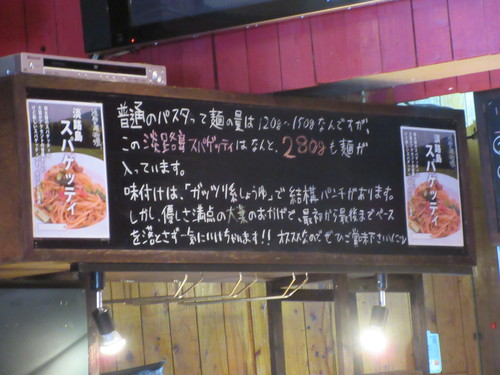 普通のパスタって麺の量は120g〜150gなんですが、
この淡路島スパゲッティはなんと、280gも麺が
入っています。
味付けは、「ガッツリ系しょうゆ」で結構パンチがあります。
しかし、優しさ満点の大葉のおかげで、最初から最後までペース
を落とさず一気にいけちゃいます!! オススメなのでぜひご賞味下さい
淡路島
スパゲッティ
淡路島
スパゲッティ